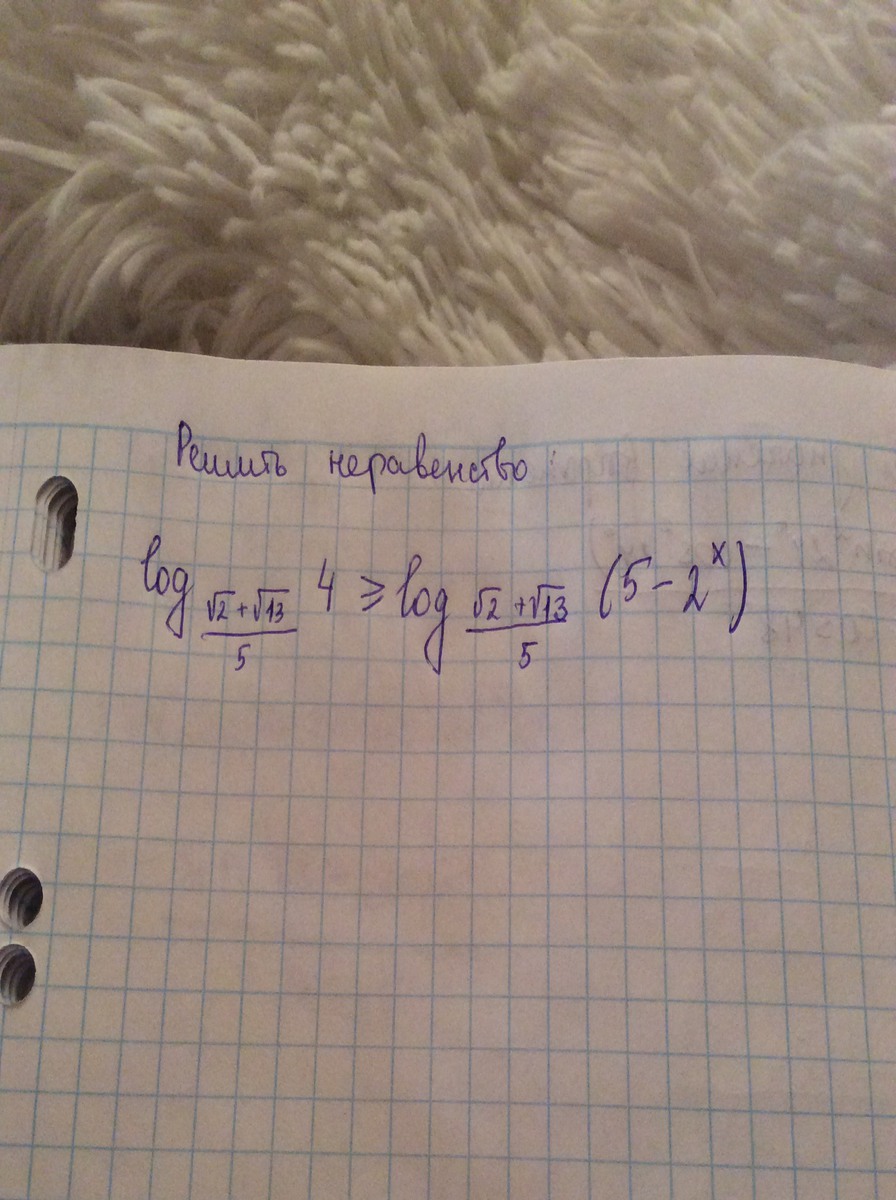 Решить неравенство:
log_{(√2+√13)/5} 4 ≥ log_{(√2+√13)/5} (5-2^x)